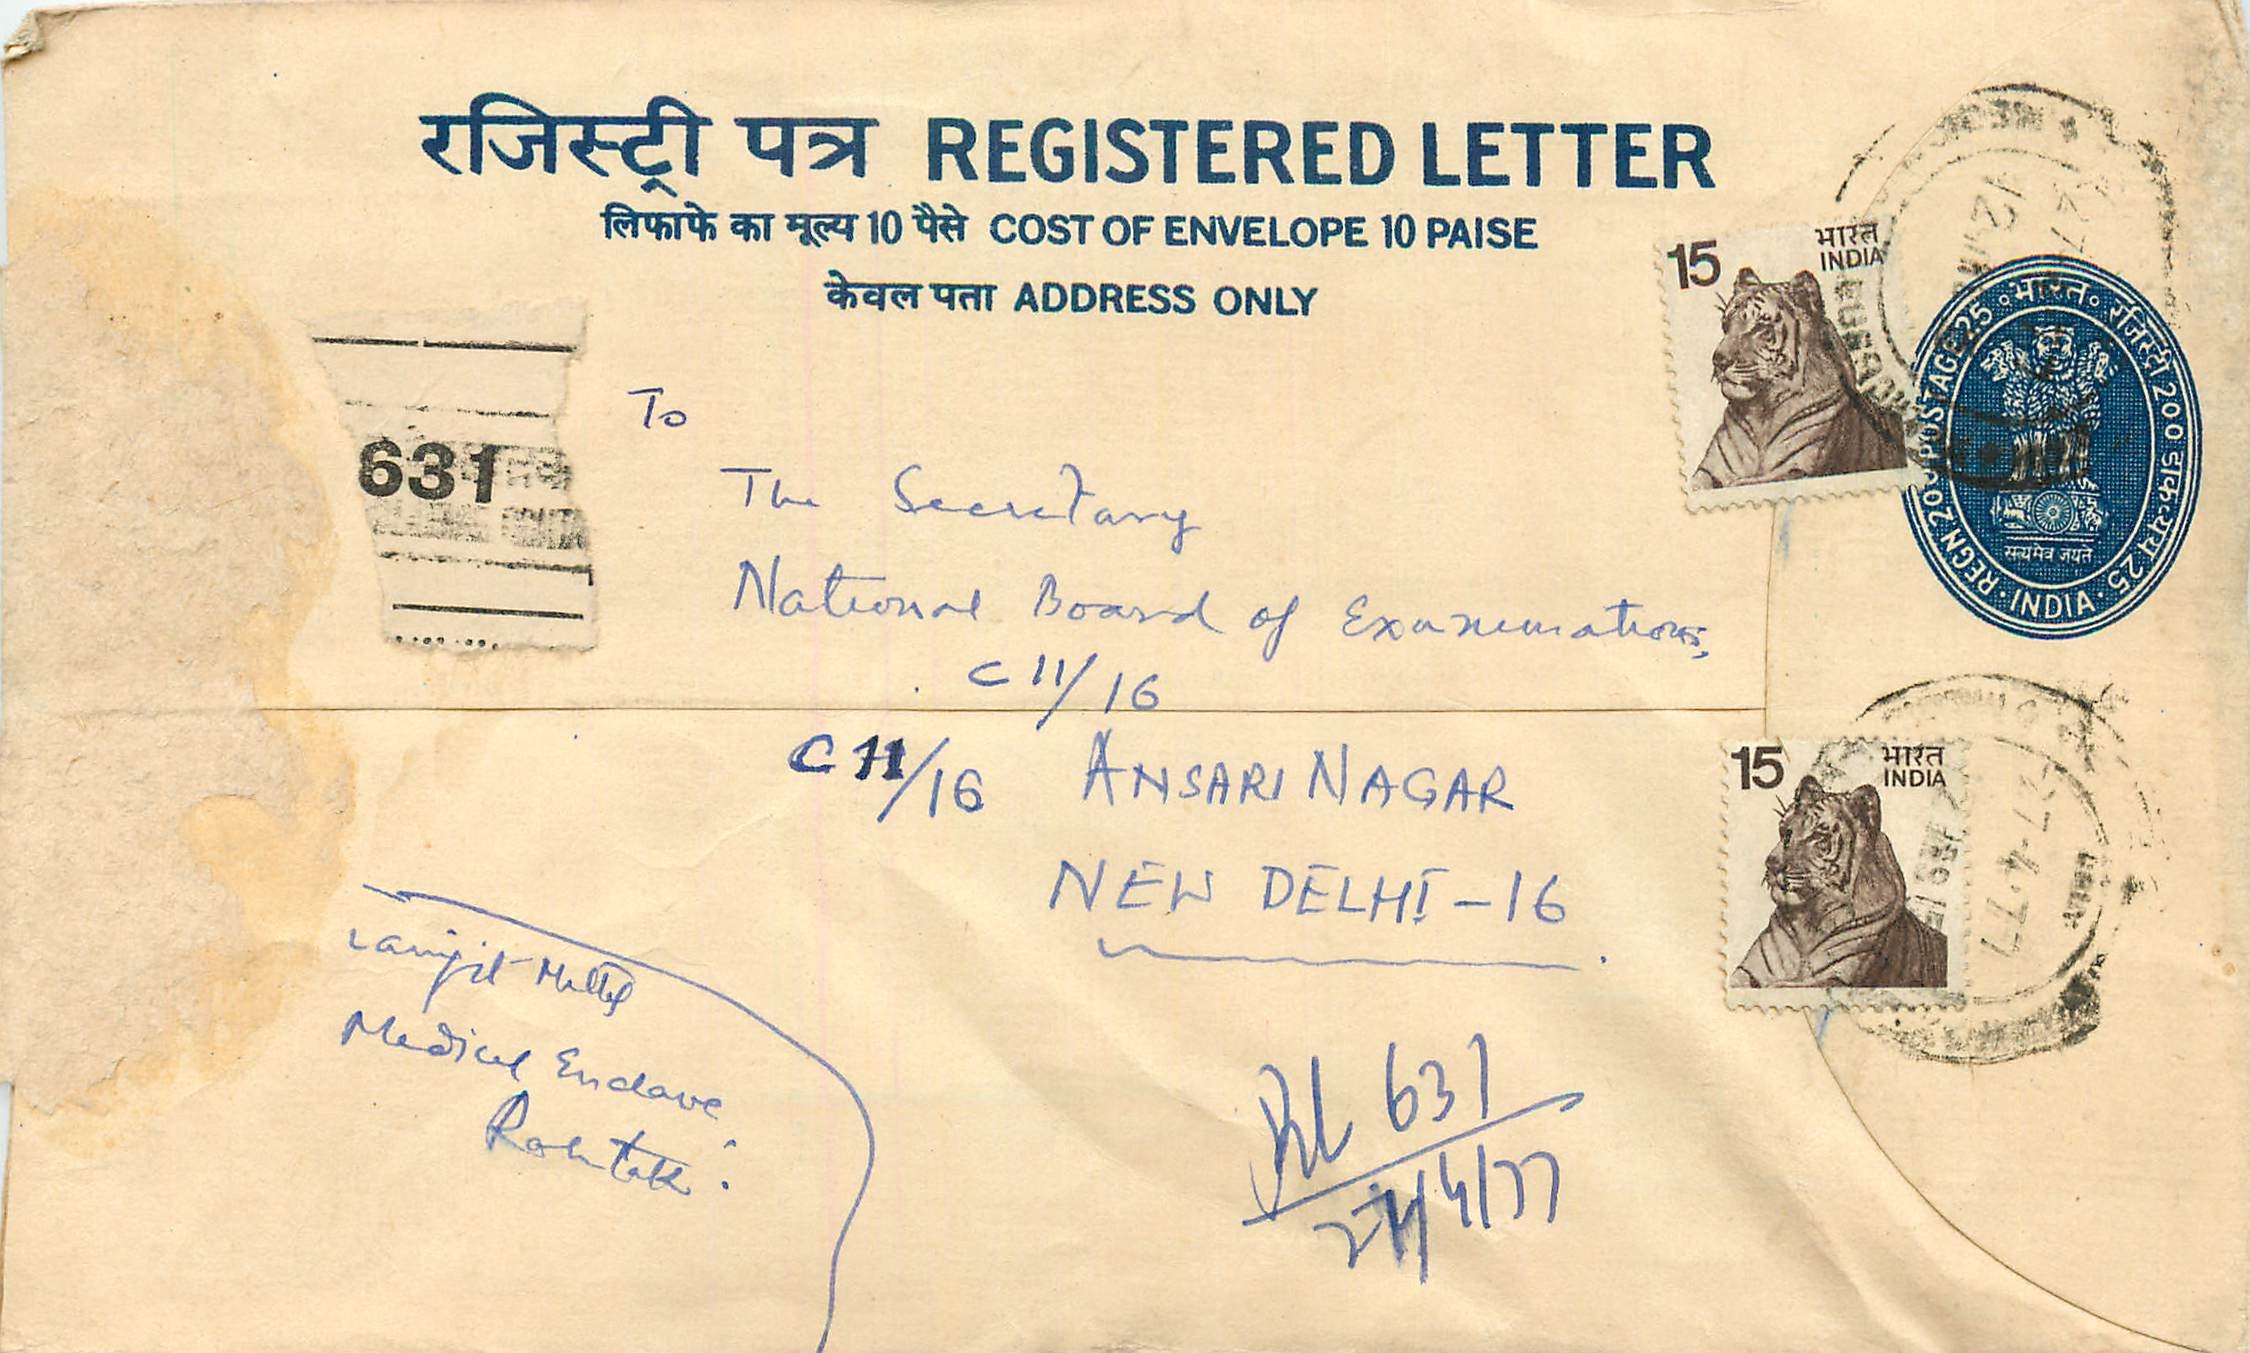 रजिस्ट्री पत्र REGISTERED LETTER
लिफाफे का मूल्य 10 पैसे COST OF ENVELOPE 10 PAISE
केवल पता ADDRESS ONLY
15 भारत
INDIA
भारत रजिस्ट्री 200 डाक-व्यय 25
REGN 200 POSTAGE 25
सत्यमेव जयते
INDIA
631
To
The Secretary
National Board of Examinations,
C 11/16
C 11/16 ANSARI NAGAR
NEW DELHI-16
15 भारत
INDIA
27-4-77
Medical Enclave
Rohtak.
RL 631
27/4/77